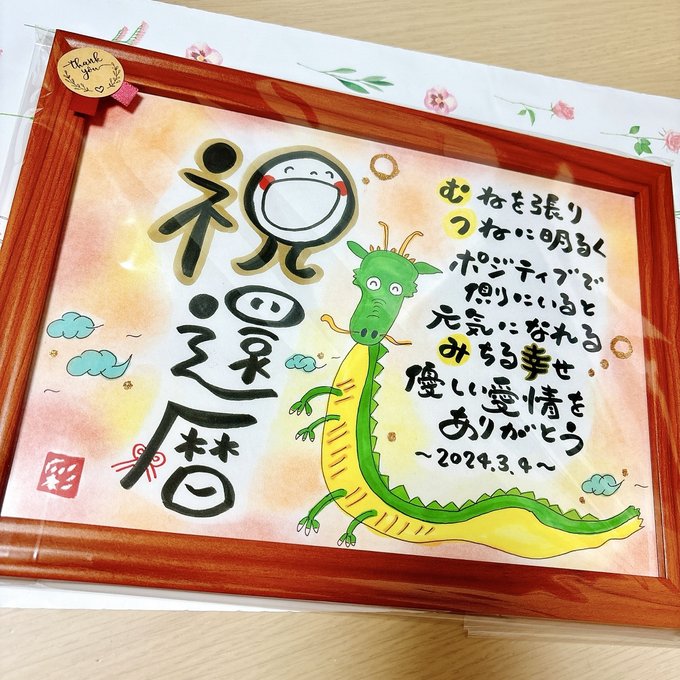 thank you
祝
還
暦
むねを張り
つねに明るく
ポジティブで
側にいると
元気になれる
みちる幸せ
優しい愛情を
ありがとう
～2024.3.4～
彩